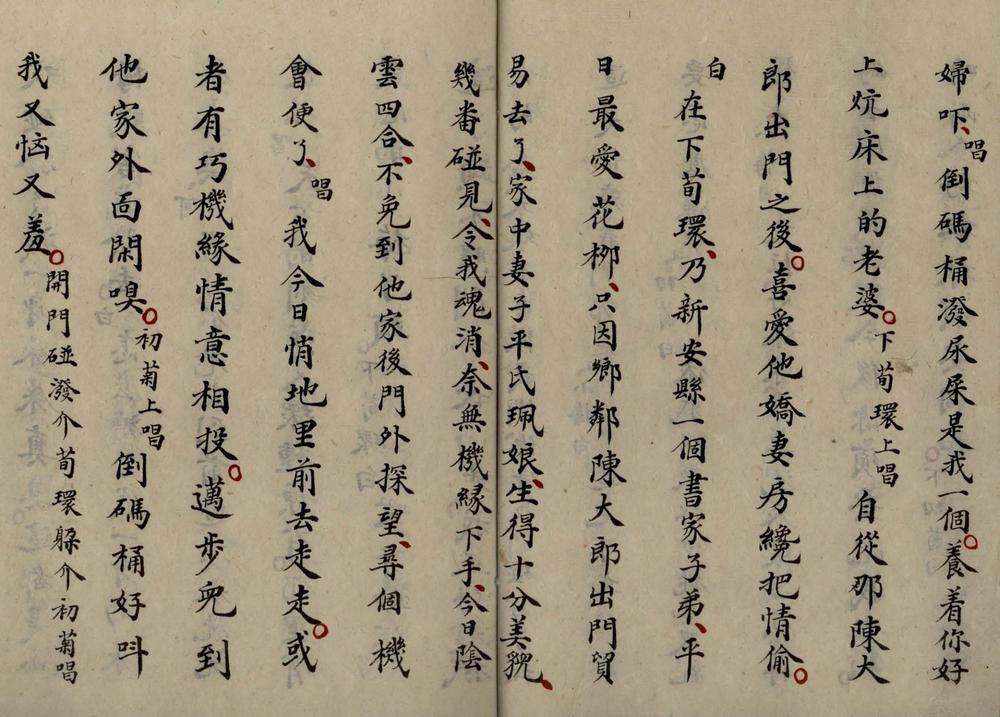 婦吓、唱倒碼桶潑尿屎是我一個。養着你好
上炕床上的老婆。下荀環上唱自從那陳大
郎出門之後。喜愛他嬌妻房纔把情偷。
白在下荀環、乃新安縣一個書家子弟、平
日最愛花柳、只因鄉鄰陳大郎出門貿
易去了、家中妻子平氏珮娘、生得十分美貌、
幾番碰見、令我魂消、奈無機緣下手、今日陰
雲四合、不免到他家後門外探望、尋個機
會便了、唱我今日悄地里前去走走。或
者有巧機緣情意相投。邁步兒到
他家外面閑嗅。初菊上唱倒碼桶好呌
我又恼又羞。開門碰潑介荀環躲介初菊唱